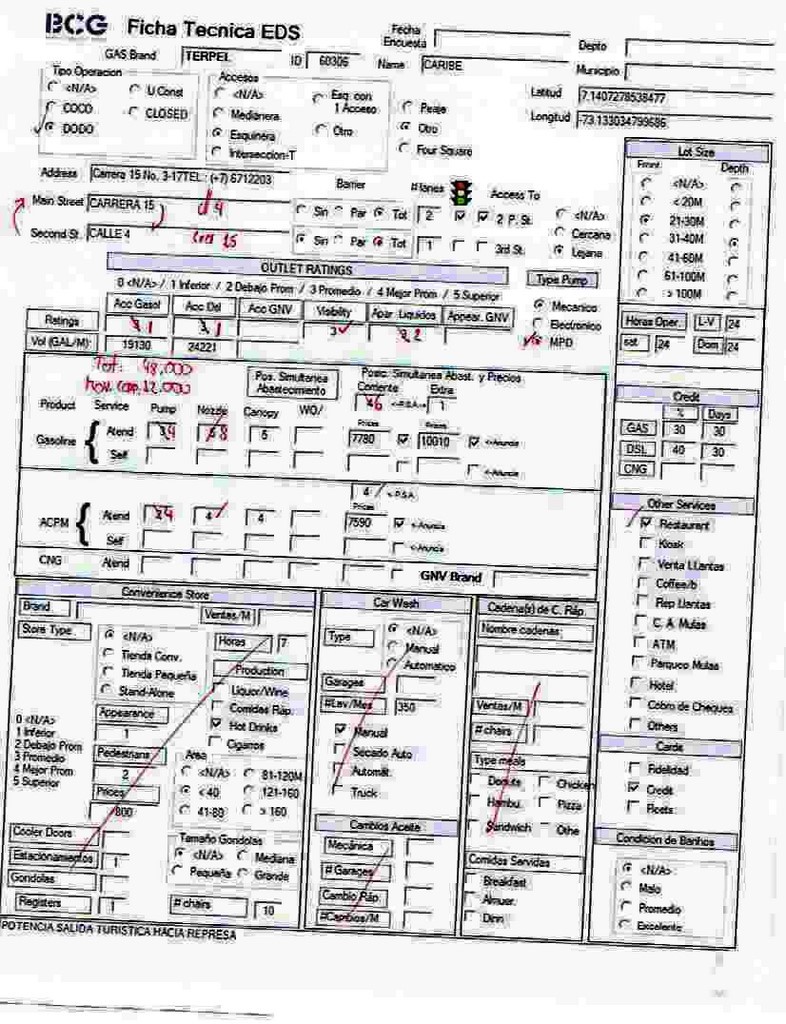 BCG Ficha Tecnica EDS
Fecha Encuesta
Depto
GAS Brand TERPEL ID 60306 Name CARIBE Municipio
Tipo Operacion
<N/A> U.Const
COCO CLOSED
DODO
Accesos
<N/A> Esq. con 1 Acceso
Medianera
Esquinera Otro
Interseccion-T
Peaje
Otro
Four Square
Latitud 7.1407278538477
Longitud -73.133034799686
Address Carrera 15 No. 3-17TEL.: (+7) 6712203
Barrier #lanes Access To
Main Street CARRERA 15 Sin Par Tot 2 2 P. St.
Second St. CALLE 4 Sin Par Tot 1 3rd St.
<N/A>
Cercana
Lejana
Lot Size
Front Depth
<N/A>
< 20M
21-30M
31-40M
41-60M
61-100M
> 100M
OUTLET RATINGS
0 <N/A> / 1 Inferior / 2 Debajo Prom / 3 Promedio / 4 Mejor Prom / 5 Superior
Acc Gasol Acc Dsl Acc GNV Visibility Apar. Liquidos Appear. GNV
Ratings 1 1 3 2
Vol (GAL/M): 19130 24221
Type Pump
Mecanico
Electronico
MPD
Horas Oper. L-V 24
sat. 24 Dom 24
Tot: 48,000
12.000
Pos. Simultanea Abastecimiento
Posic. Simultanea Abast. y Precios
Corriente Extra
6 <-P.S.A-> 1
Product Service Pump Nozzle Canopy WO/
Prices Prices
Gasoline Atend 4 8 6 7780 10010 <-Anuncia
Self <-Anuncia
4 <-P.S.A
Prices
ACPM Atend 4 4 4 7590 <-Anuncia
Self <-Anuncia
CNG Atend GNV Brand
Credit
% Days
GAS 30 30
DSL 40 30
CNG
Other Services
Restaurant
Kiosk
Venta LLantas
Coffee/b
Rep Llantas
C. A. Mulas
ATM
Parqueo Mulas
Hotel
Cobro de Cheques
Others
Cards
Fidelidad
Credit
Fleets
Condicion de Banhos
<N/A>
Malo
Promedio
Excelente
Convenience Store
Brand Ventas/M
Store Type
<N/A>
Tienda Conv.
Tienda Pequeña
Stand-Alone
Horas 7
Production
Liquor/Wine
Comidas Ráp.
Hot Drinks
Cigarros
0 <N/A>
1 Inferior
2 Debajo Prom
3 Promedio
4 Mejor Prom
5 Superior
Appearance
1
Pedestrians
2
Prices
800
Area
<N/A> 81-120M
< 40 121-160
41-80 > 160
Cooler Doors
Estacionamientos 1
Gondolas
Registers 1
Tamaño Gondolas
<N/A> Mediana
Pequeña Grande
# chairs 10
Car Wash
Type
<N/A>
Manual
Automatico
Garages
#Lav/Mes 350
Manual
Secado Auto
Automát.
Truck
Cambios Aceite
Mecánica
# Garages
Cambio Ráp.
#Cambios/M
Cadena(s) de C. Ráp.
Nombre cadenas:
Ventas/M
# chairs
Type meals
Donuts Chicken
Hambu. Pizza
Sandwich Othe
Comidas Servidas
Breakfast
Almuer.
Dinn
POTENCIA SALIDA TURISTICA HACIA REPRESA